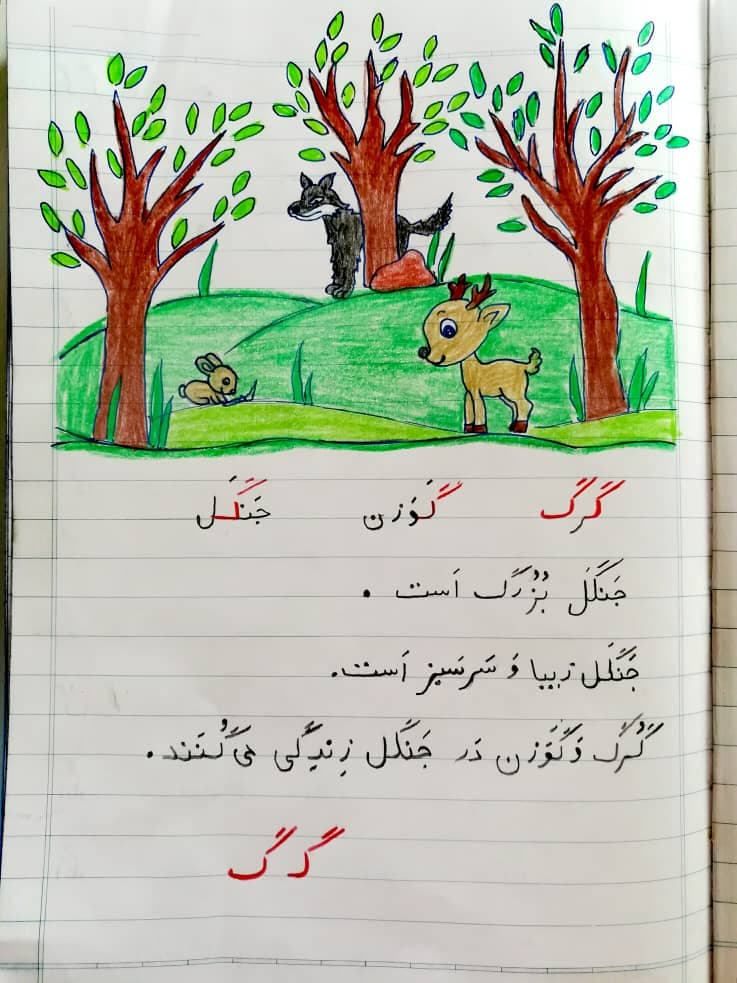 گرگ گَوَزن جَنگَل
جَنگَل بُزُرگ اَست .
جَنگَل زیبا وَ سَرسَبز اَست.
گُرگ وَ گَوَزن دَر جَنگَل زِندِگی می‌کُنَند.
گ گ